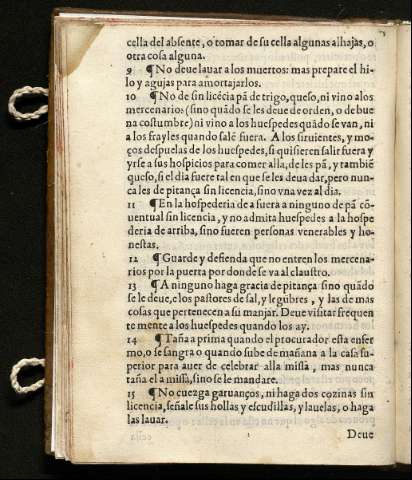 cella del absente, o tomar de su cella algunas alhajas, o
otra cosa alguna.
9 ¶ No deue lauar a los muertos: mas prepare el hi-
lo y agujas para amortajarlos.
10 ¶ No de sin licẽcia pã de trigo, queso, ni vino a los
mercenarios (sino quãdo se les deue de orden, o de bue
na costumbre) ni vino a los huespedes quãdo se van, ni
a los frayles quando salẽ fuera. A los siruientes, y mo-
ços despuelas de los huespedes, si quisieren salir fuera y
yrse a sus hospicios para comer alla, de les pã, y tambiẽ
queso, si el dia fuere tal en que se les deua dar, pero nun-
ca les de pitança sin licencia, sino vna vez al dia.
11 ¶ En la hospederia de a fuera a ninguno de pã cõ-
uentual sin licencia, y no admita huespedes a la hospe
deria de arriba, sino fueren personas venerables y ho-
nestas.
12 ¶ Guarde y defienda que no entren los mercena-
rios por la puerta por donde se va al claustro.
13 ¶ A ninguno haga gracia de pitança sino quãdo
se le deue, e los pastores de sal, y legũbres, y las de mas
cosas que pertenecen a su manjar. Deue visitar frequen
temente a los huespedes quando los ay.
14 ¶ Taña a prima quando el procurador esta enfer
mo, o se sangra o quando sube de mañana a la casa su-
perior para auer de celebrar alla missa, mas nunca
taña el a missa, sino se le mandare.
15 ¶ No cuezga garuanços, ni haga dos cozinas sin
licencia, señale sus hollas y escudillas, y lauelas, o haga
las lauar.
Deue